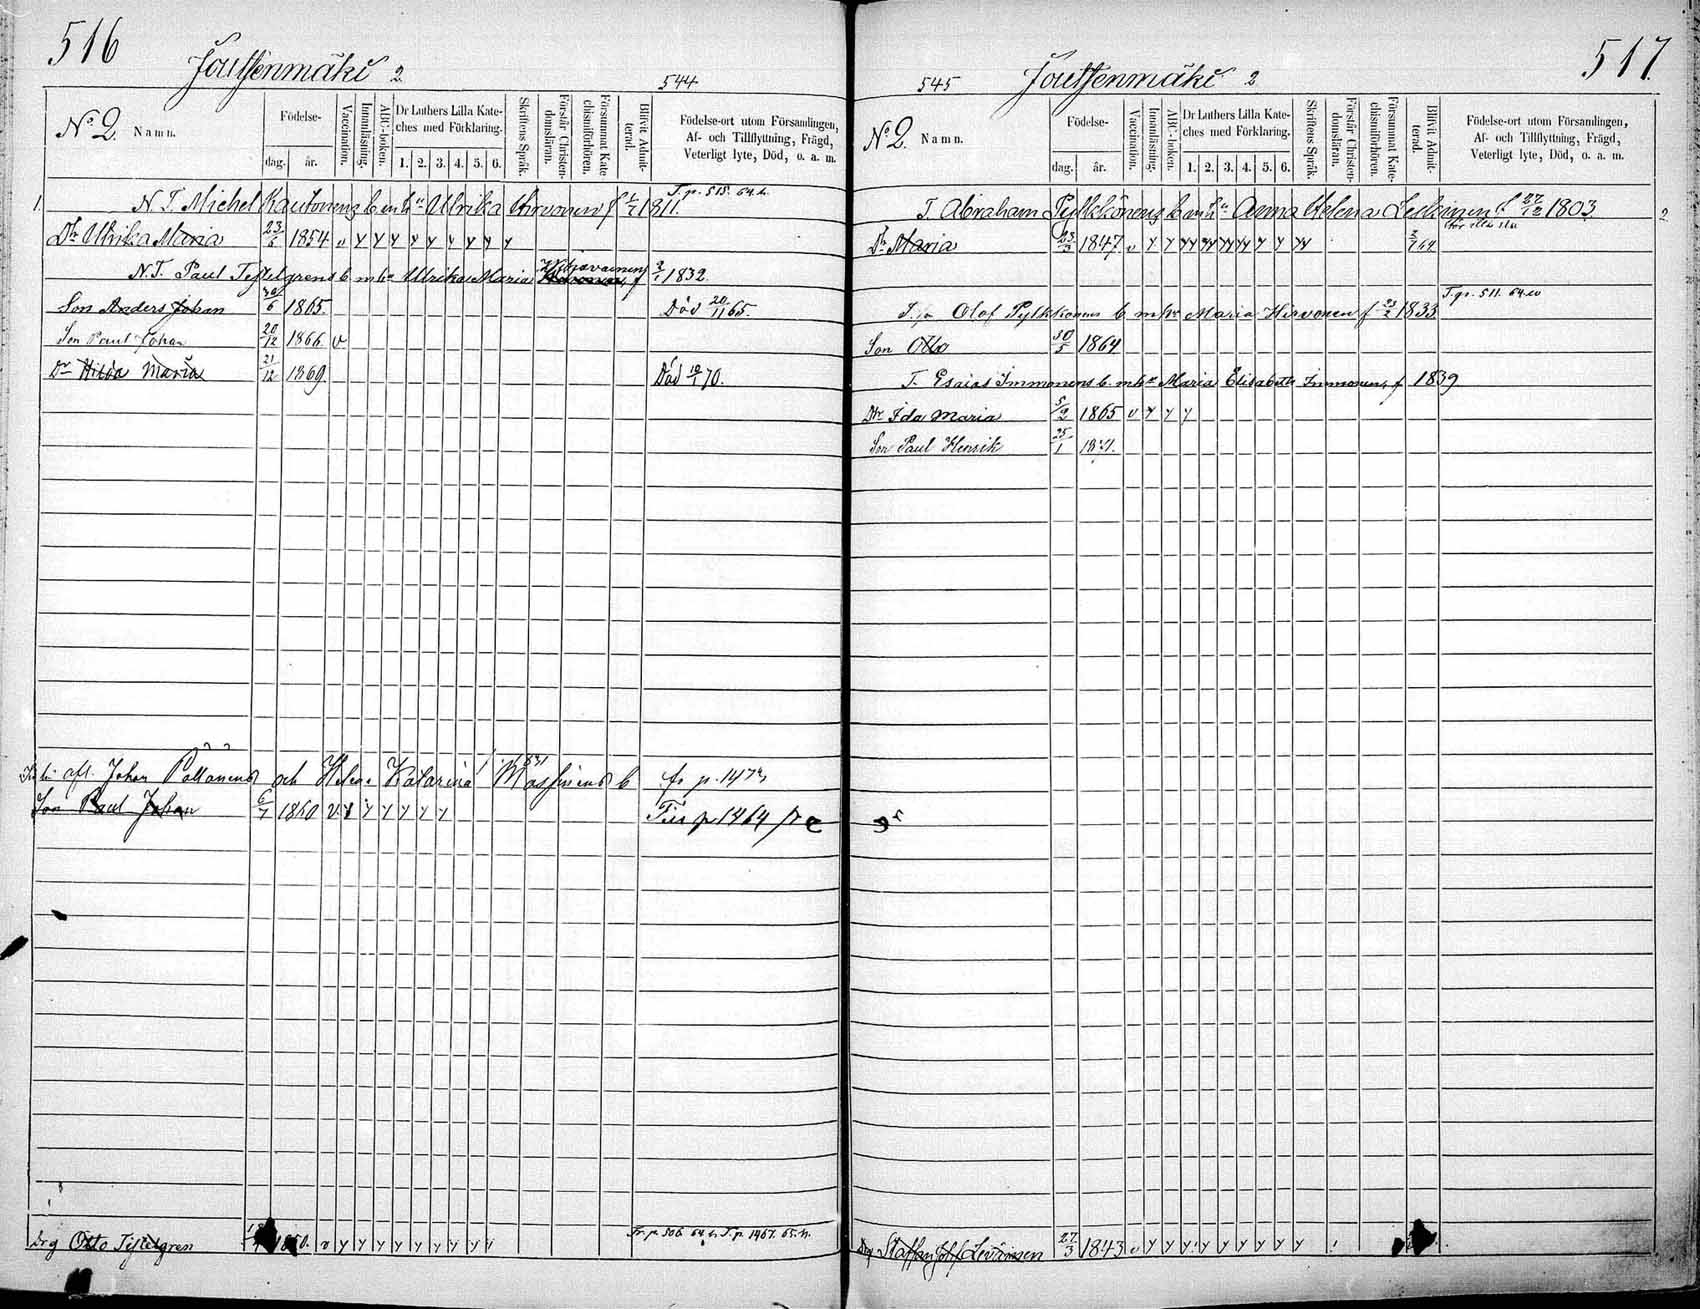 516
Jouttenmäki 2
544
No 2. Namn.
Födelse-
dag. år.
Vaccination.
Innanläsning.
ABC-boken.
Dr Luthers Lilla Kate-
ches med Förklaring.
1. 2. 3. 4. 5. 6.
Skriftens Språk.
Förstår Christen-
domsläran.
Försummat Kate
chismiförhören.
Blifvit Admit-
terad.
Födelse-ort utom Församlingen,
Af- och Tillflyttning, Frägd,
Veterligt lyte, Död, o. a. m.
1. N. T. Michel Kautonens b m hu Ulrika Hirvonen f 1/7 1811. T. p. 515. 64.
Dr Ulrika Maria 23/6 1854 v y y y y y y y y y
N. T. Paul Tefletgrens b m hu Ulrika Maria f 2/1 1832.
Son Anders Johan 30/6 1865. Död 20/11 65.
Son Paul Johan 20/12 1866 v
Dr Hilda Maria 21/12 1869. Död 10/1 70.
afl. Johan Pöllänens och Helena Katarina b fr p. 1472
Son Paul Johan 6/7 1860 v y y y y y y p 1464
Drg Otto Tefletgren 1850. v y y y y y y y y Fr. p. 506. 64 T. p. 1467. 65.
517
545
Jouttenmäki 2
No 2. Namn.
Födelse-
dag. år.
Vaccination.
Innanläsning.
ABC-boken.
Dr Luthers Lilla Kate-
ches med Förklaring.
1. 2. 3. 4. 5. 6.
Skriftens Språk.
Förstår Christen-
domsläran.
Försummat Kate-
chismiförhören.
Blifvit Admit-
terad.
Födelse-ort utom Församlingen,
Af- och Tillflyttning, Frägd,
Veterligt lyte, Död, o. a. m.
T. Abraham Pylkkönens b m hu Anna Helena f. 27/12 1803. 2
Dr Maria 23/3 1847. v y y yy yy yy yy y y yy 69
T. Olof Pylkkönens b m hu Maria Hirvonen f 23/2 1833 T. p. 511. 64
Son Otto 30/5 1864
T. Esaias Immonens b. m hu Maria Elisabeth Immonen, f 1839
Dr Ida Maria 5/2 1865 v y y y
Son Paul Henrik 25/1 1871.
Drg Staffan Levänen 27/3 1843 v y y y y y y y y